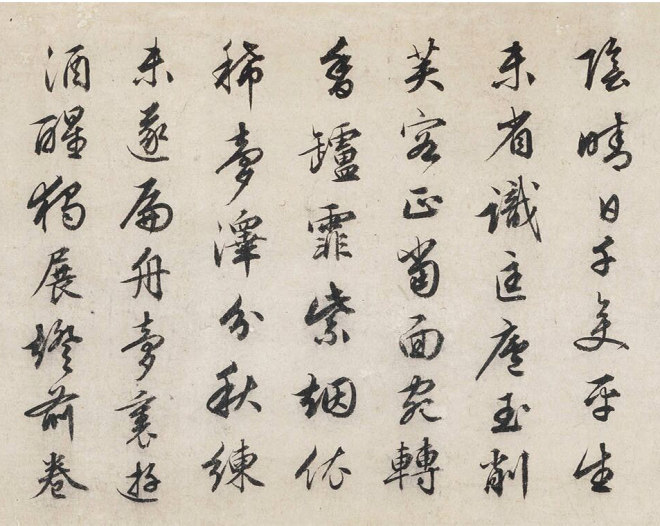 陰晴日千變平生
未省識匡廬玉削
芙容正當面宛轉
香鑪霏紫烟依
稀夢澤分秋練
未遂扁舟夢裏遊
酒醒獨展燈前卷